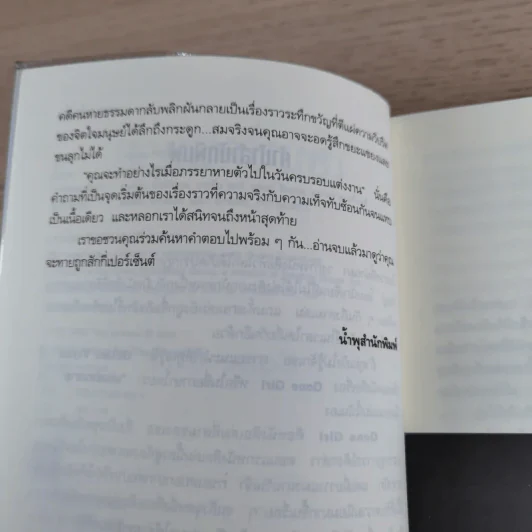 คดีคนหายธรรมดากลับพลิกผันกลายเป็นเรื่องราวระทึกขวัญที่ตีแผ่ความวิปริต
ของจิตใจมนุษย์ได้ลึกถึงกระดูก...สมจริงจนคุณอาจจะอดรู้สึกขยะแขยงและ
ขนลุกไม่ได้
"คุณจะทำอย่างไรเมื่อภรรยาหายตัวไปในวันครบรอบแต่งงาน" นั่นคือ
คำถามที่เป็นจุดเริ่มต้นของเรื่องราวที่ความจริงกับความเท็จทับซ้อนกันจนแทบ
เป็นเนื้อเดียว และหลอกเราได้สนิทจนถึงหน้าสุดท้าย
เราขอชวนคุณร่วมค้นหาคำตอบไปพร้อม ๆ กัน...อ่านจบแล้วมาดูว่าคุณ
จะทายถูกสักกี่เปอร์เซ็นต์
น้ำพุสำนักพิมพ์